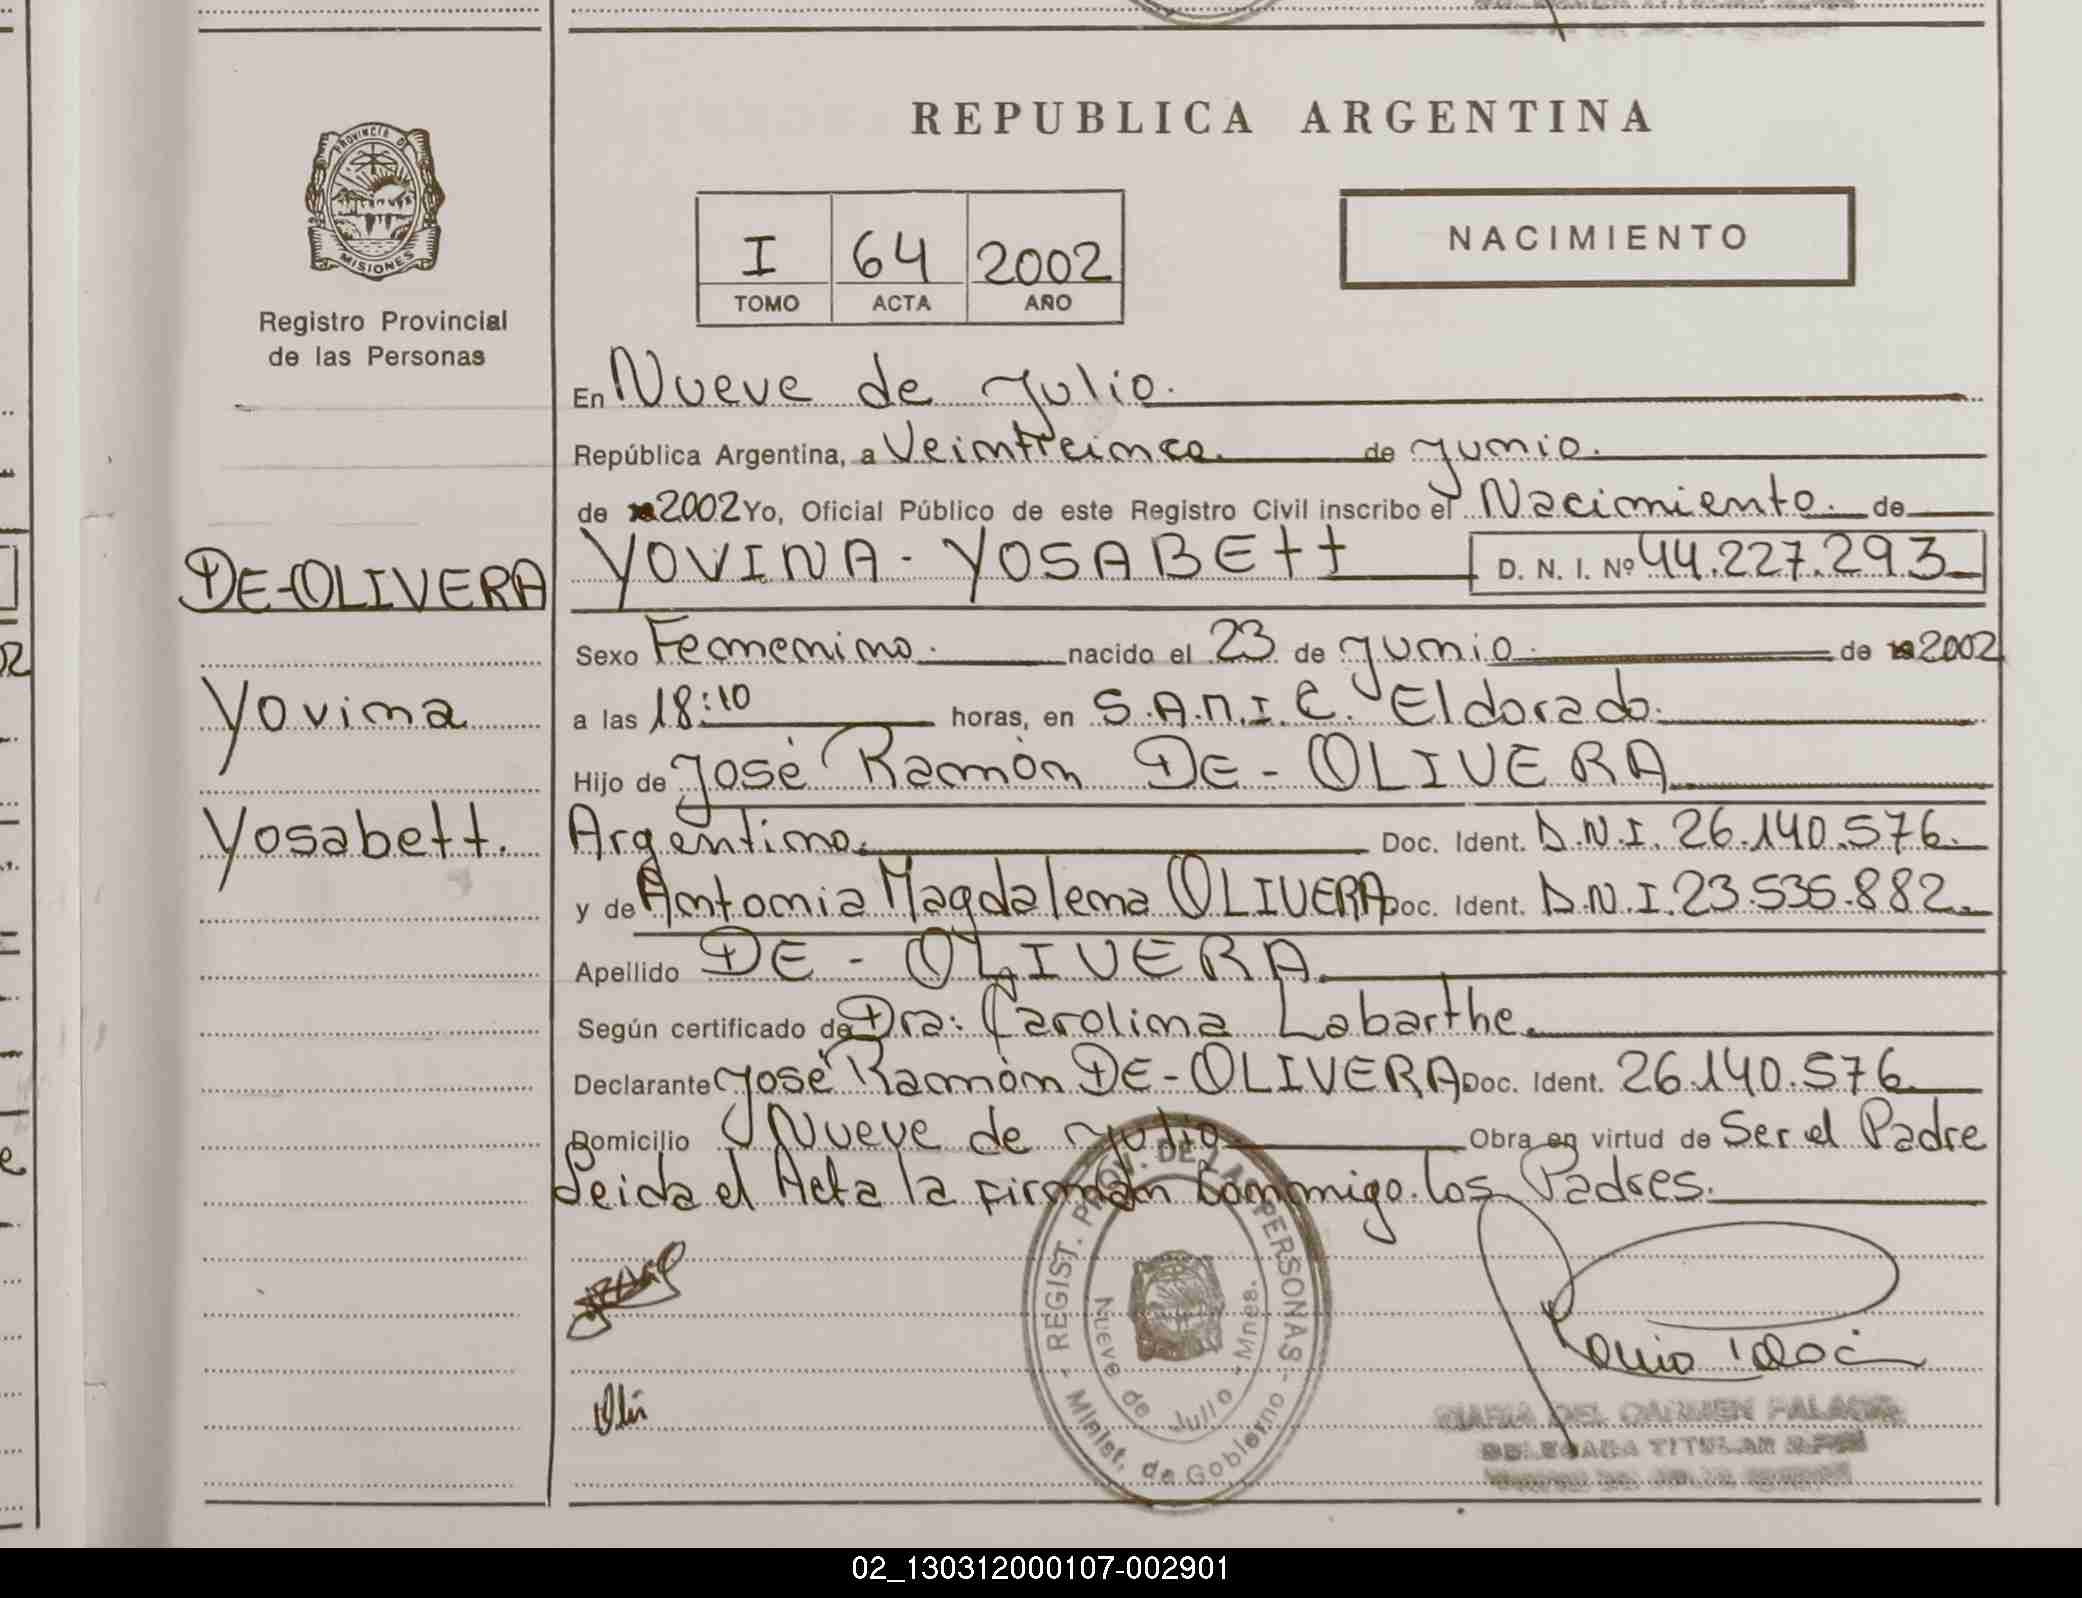 REPUBLICA ARGENTINA
PROVINCIA DE
MISIONES
Registro Provincial
de las Personas
I 64 2002
TOMO ACTA AÑO
NACIMIENTO
En Nueve de Julio.
República Argentina, a Veinticinco de Junio.
de 2002 Yo, Oficial Público de este Registro Civil inscribo el Nacimiento de
DE-OLIVERA
YOVINA - YOSABEtt D. N. I. Nº 44.227.293
Sexo Femenino. nacido el 23 de Junio de 2002
Yovina
a las 18:10 horas, en S.A.M.I.C. Eldorado.
Hijo de José Ramón DE - OLIVERA
Yosabett.
Argentino. Doc. Ident. D.N.I. 26.140.576.
y de Antonia Magdalena OLIVERA Doc. Ident. D.N.I. 23.535.882.
Apellido DE - OLIVERA
Según certificado de Dra: Carolina Labarthe.
Declarante José Ramón DE-OLIVERA Doc. Ident. 26.140.576
Domicilio Nueve de Julio Obra en virtud de Ser el Padre
Leida el Acta la firman Conmigo los Padres.
REGIST. PROV. DE LAS PERSONAS
Nueve de Julio - Mnes.
Minist. de Gobierno
MARIA DEL CARMEN
DELEGADA TITULAR
02_130312000107-002901